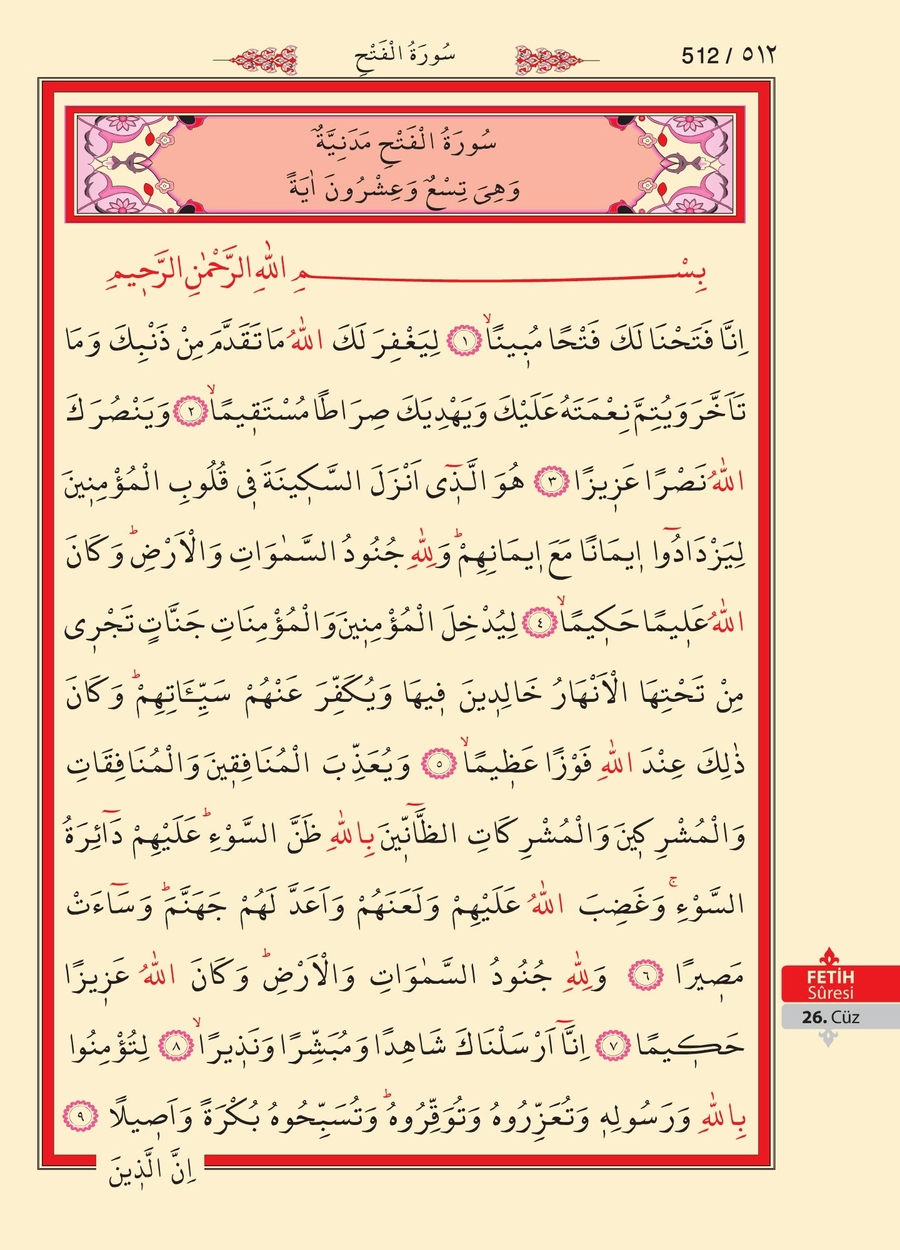 512 / ٥١٢
سُورَةُ الْفَتْحِ
سُورَةُ الْفَتْحِ مَدَنِيَّةٌ
وَهِىَ تِسْعٌ وَعِشْرُونَ اٰيَةً
بِسْمِ اللّٰهِ الرَّحْمٰنِ الرَّحٖيمِ
اِنَّا فَتَحْنَا لَكَ فَتْحًا مُبٖينًاۙ ﴿١﴾ لِيَغْفِرَ لَكَ اللّٰهُ مَا تَقَدَّمَ مِنْ ذَنْبِكَ وَمَا
تَاَخَّرَ وَيُتِمَّ نِعْمَتَهُ عَلَيْكَ وَيَهْدِيَكَ صِرَاطًا مُسْتَقٖيمًاۙ ﴿٢﴾ وَيَنْصُرَكَ
اللّٰهُ نَصْرًا عَزٖيزًا ﴿٣﴾ هُوَ الَّذٖٓى اَنْزَلَ السَّكٖينَةَ فٖى قُلُوبِ الْمُؤْمِنٖينَ
لِيَزْدَادُٓوا اٖيمَانًا مَعَ اٖيمَانِهِمْؕ وَلِلّٰهِ جُنُودُ السَّمٰوَاتِ وَالْاَرْضِؕ وَكَانَ
اللّٰهُ عَلٖيمًا حَكٖيمًاۙ ﴿٤﴾ لِيُدْخِلَ الْمُؤْمِنٖينَ وَالْمُؤْمِنَاتِ جَنَّاتٍ تَجْرٖى
مِنْ تَحْتِهَا الْاَنْهَارُ خَالِدٖينَ فٖيهَا وَيُكَفِّرَ عَنْهُمْ سَيِّـَٔاتِهِمْؕ وَكَانَ
ذٰلِكَ عِنْدَ اللّٰهِ فَوْزًا عَظٖيمًاۙ ﴿٥﴾ وَيُعَذِّبَ الْمُنَافِقٖينَ وَالْمُنَافِقَاتِ
وَالْمُشْرِكٖينَ وَالْمُشْرِكَاتِ الظَّٓانّٖينَ بِاللّٰهِ ظَنَّ السَّوْءِؕ عَلَيْهِمْ دَٓائِرَةُ
السَّوْءِۚ وَغَضِبَ اللّٰهُ عَلَيْهِمْ وَلَعَنَهُمْ وَاَعَدَّ لَهُمْ جَهَنَّمَؕ وَسَٓاءَتْ
مَصٖيرًا ﴿٦﴾ وَلِلّٰهِ جُنُودُ السَّمٰوَاتِ وَالْاَرْضِؕ وَكَانَ اللّٰهُ عَزٖيزًا
حَكٖيمًا ﴿٧﴾ اِنَّٓا اَرْسَلْنَاكَ شَاهِدًا وَمُبَشِّرًا وَنَذٖيرًاۙ ﴿٨﴾ لِتُؤْمِنُوا
بِاللّٰهِ وَرَسُولِهٖ وَتُعَزِّرُوهُ وَتُوَقِّرُوهُؕ وَتُسَبِّحُوهُ بُكْرَةً وَاَصٖيلًا ﴿٩﴾
اِنَّ الَّذٖينَ
FETİH
Sûresi
26. Cüz